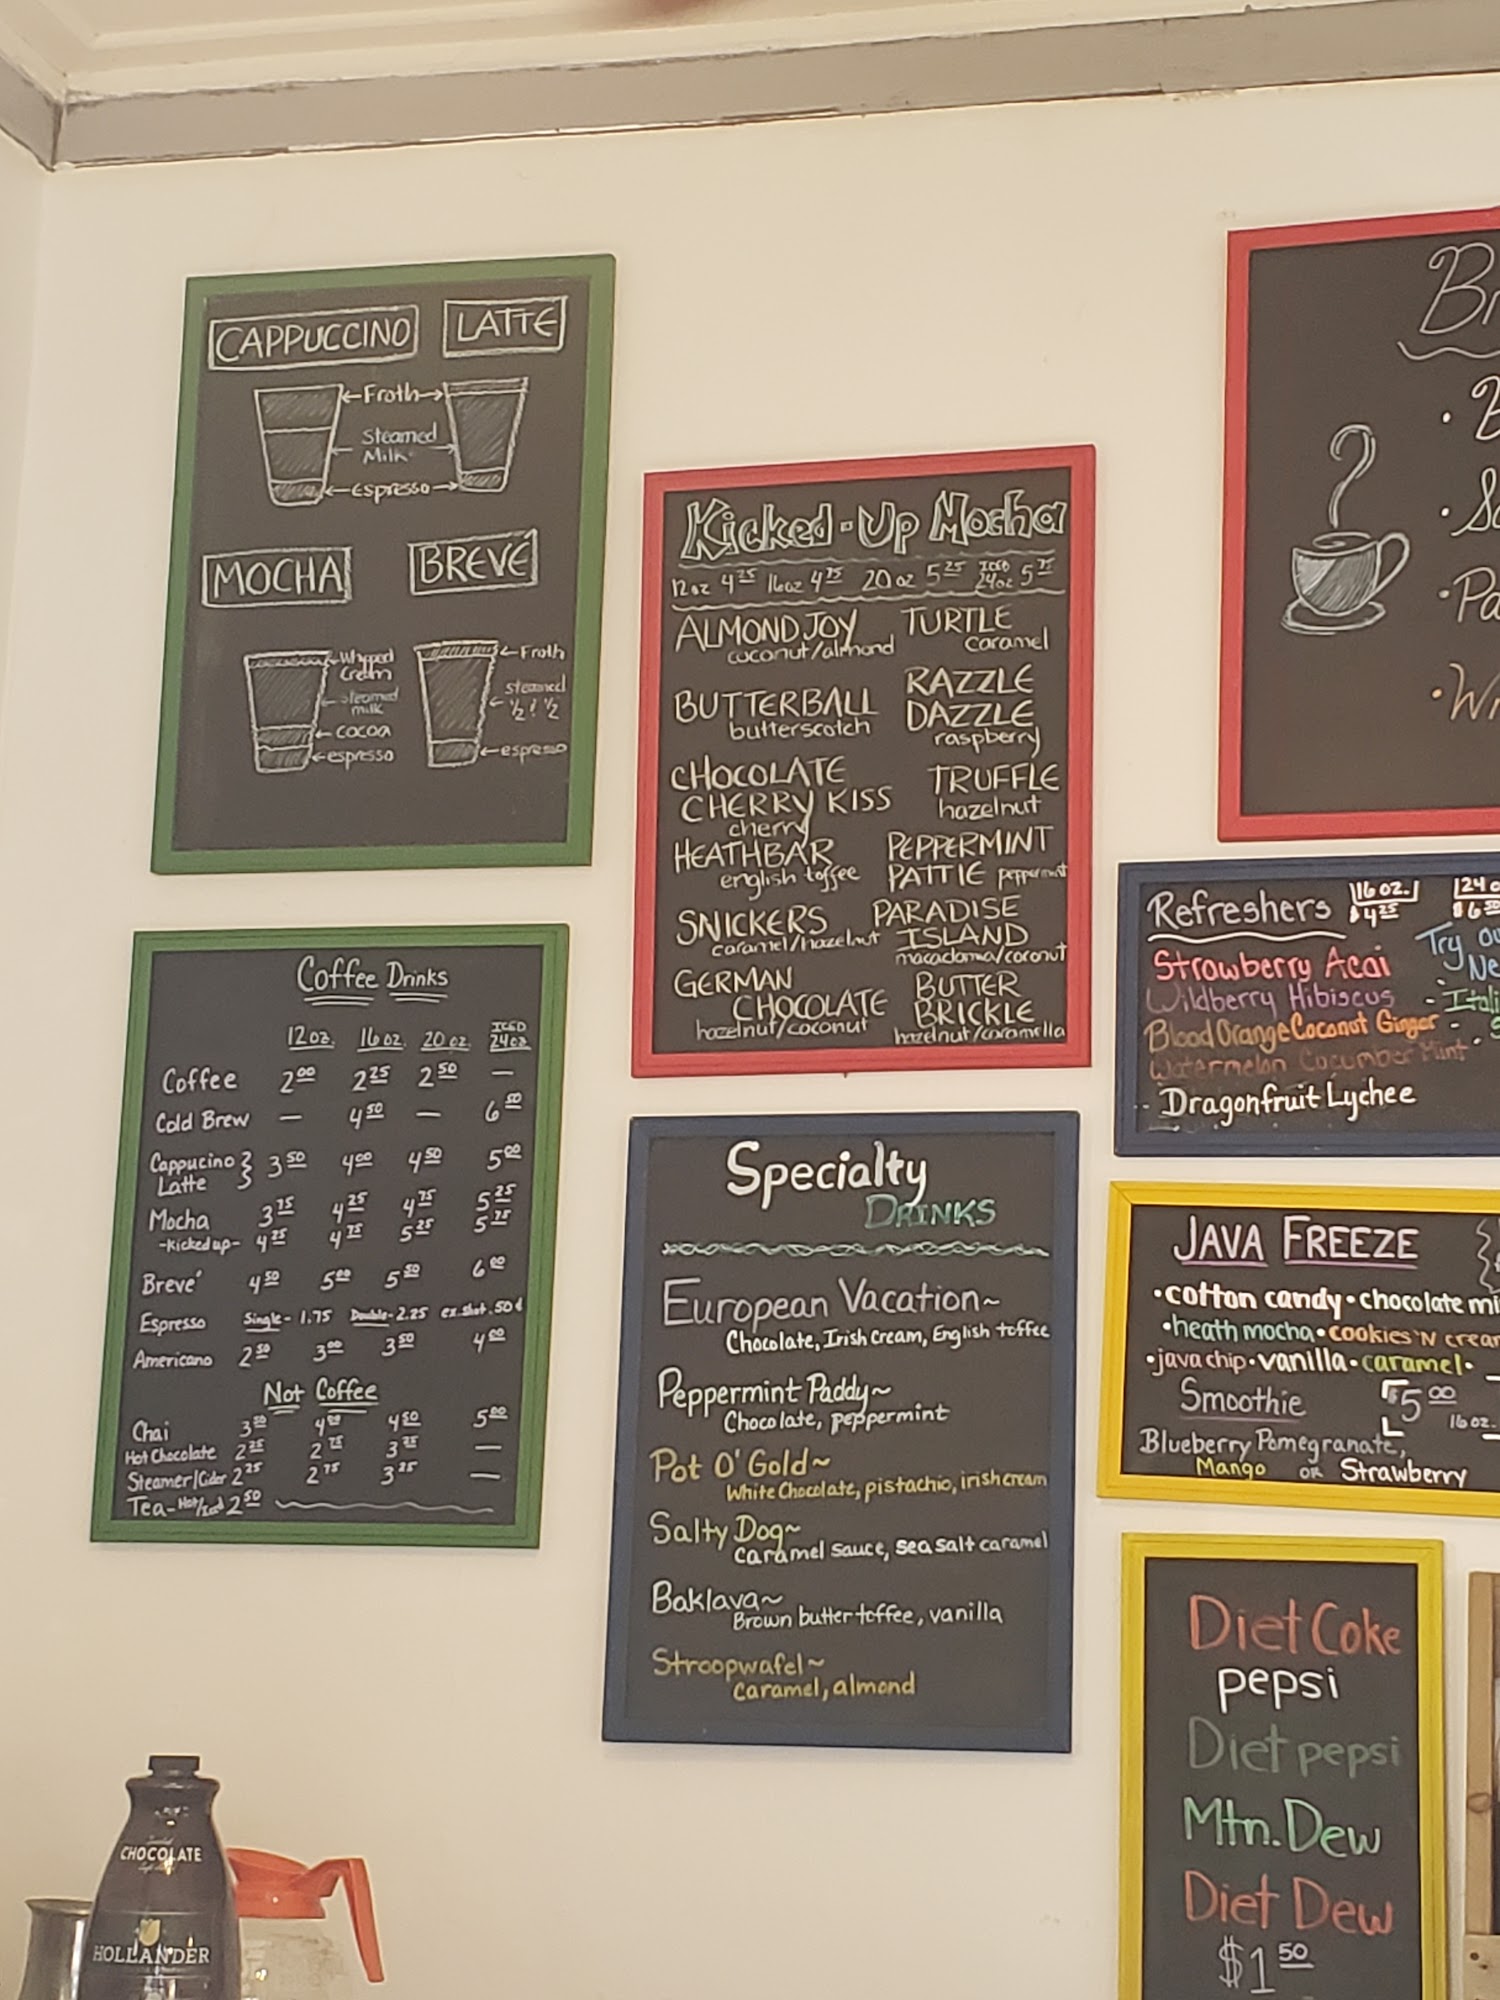 CAPPUCCINO LATTE
Froth
Steamed
Milk
espresso
MOCHA BREVÉ
Whipped
Cream
steamed
milk
cocoa
espresso
Froth
steamed
½ & ½
espresso
Coffee Drinks
12 oz. 16 oz. 20 oz. ICED 24 oz
Coffee 2.00 2.25 2.50 —
Cold Brew — 4.50 — 6.50
Cappucino
Latte 3.50 4.00 4.50 5.00
Mocha 3.75 4.25 4.75 5.25
-kicked up- 4.25 4.75 5.25 5.75
Breve' 4.50 5.00 5.50 6.00
Espresso Single- 1.75 Double- 2.25 ex. shot .50¢
Americano 2.50 3.00 3.50 4.00
Not Coffee
Chai 3.50 4.00 4.50 5.00
Hot Chocolate 2.25 2.75 3.25 —
Steamer/Cider 2.25 2.75 3.25 —
Tea-Hot/Iced 2.50
Kicked-Up Mocha
12oz 4.25 16oz 4.75 20oz 5.25 ICED 24oz 5.75
ALMOND JOY
coconut/almond
BUTTERBALL
butterscotch
CHOCOLATE
CHERRY KISS
cherry
HEATHBAR
english toffee
SNICKERS
caramel/hazelnut
GERMAN
CHOCOLATE
hazelnut/coconut
TURTLE
caramel
RAZZLE
DAZZLE
raspberry
TRUFFLE
hazelnut
PEPPERMINT
PATTIE peppermint
PARADISE
ISLAND
macadamia/coconut
BUTTER
BRICKLE
hazelnut/caramella
Specialty
DRINKS
European Vacation~
Chocolate, Irish Cream, English toffee
Peppermint Paddy~
Chocolate, peppermint
Pot O' Gold~
White Chocolate, pistachio, irish cream
Salty Dog~
caramel sauce, sea salt caramel
Baklava~
Brown butter toffee, vanilla
Stroopwafel~
caramel, almond
Refreshers 16 oz. $4.25
Strawberry Acai
Wildberry Hibiscus
Blood Orange Coconut Ginger
Watermelon Cucumber Mint
Dragonfruit Lychee
Try
JAVA FREEZE
•cotton candy•chocolate
•heath mocha•cookies 'N
•java chip•vanilla•caramel•
Smoothie $5.00 16 oz.
Blueberry Pomegranate,
Mango or Strawberry
Diet Coke
pepsi
Diet pepsi
Mtn. Dew
Diet Dew
$1.50
CHOCOLATE
HOLLANDER